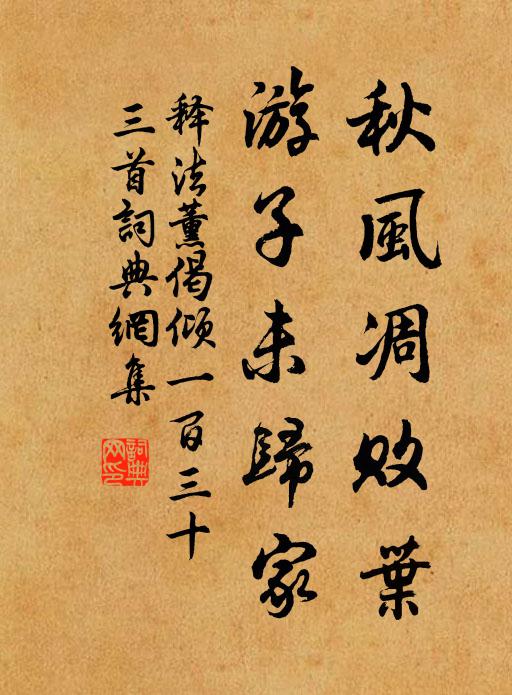 秋風凋敗葉
游子未歸家
释法薰偈倾一百三十
三首詞典網集
詞典
网印